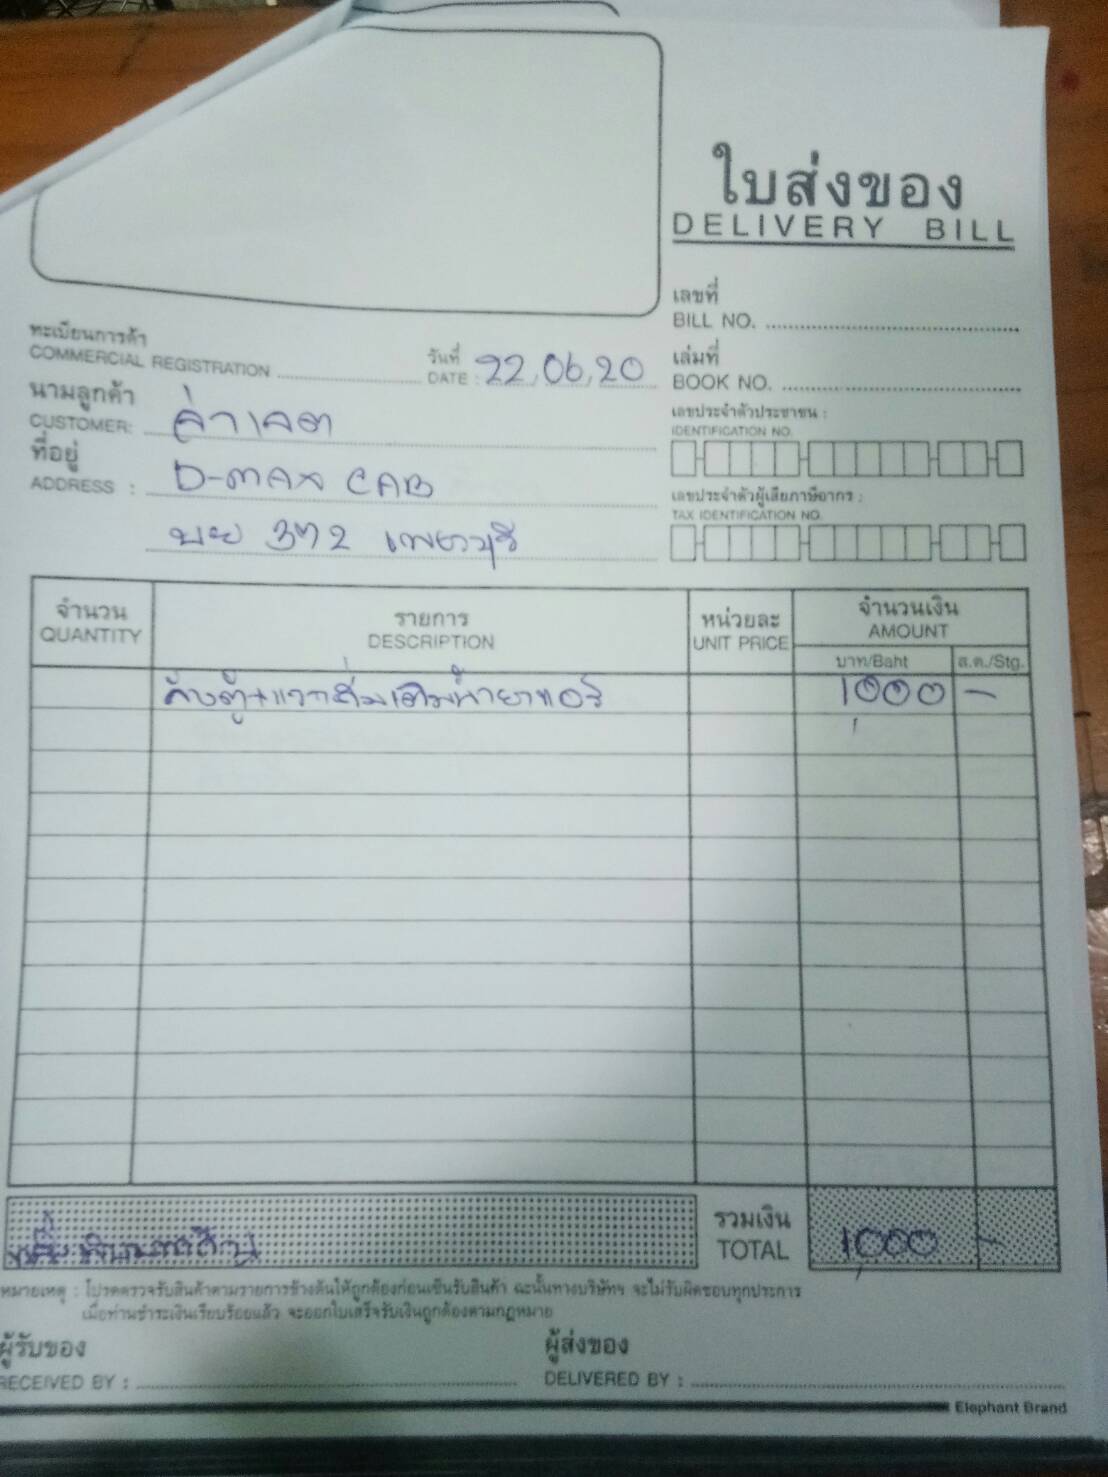 ใบส่งของ
DELIVERY BILL
เลขที่
BILL NO.
ทะเบียนการค้า
COMMERCIAL REGISTRATION
วันที่
DATE : 22,06,20
เล่มที่
BOOK NO.
นามลูกค้า
CUSTOMER:
เลขประจำตัวประชาชน :
IDENTIFICATION NO.
ที่อยู่
ADDRESS : D-MAX CAB
เลขประจำตัวผู้เสียภาษีอากร :
TAX IDENTIFICATION NO.
372 เพชรบุรี
จำนวน รายการ หน่วยละ จำนวนเงิน
QUANTITY DESCRIPTION UNIT PRICE AMOUNT
บาท/Baht ส.ต./Stg.
ล้างตู้+แวคคั่มเติมน้ำยาแอร์ 1000 -
รวมเงิน
TOTAL 1,000 -
หมายเหตุ : โปรดตรวจรับสินค้าตามรายการข้างต้นให้ถูกต้องก่อนเซ็นรับสินค้า ฉะนั้นทางบริษัทฯ จะไม่รับผิดชอบทุกประการ
เมื่อท่านชำระเงินเรียบร้อยแล้ว จะออกใบเสร็จรับเงินถูกต้องตามกฎหมาย
ผู้รับของ ผู้ส่งของ
RECEIVED BY : DELIVERED BY :
Elephant Brand